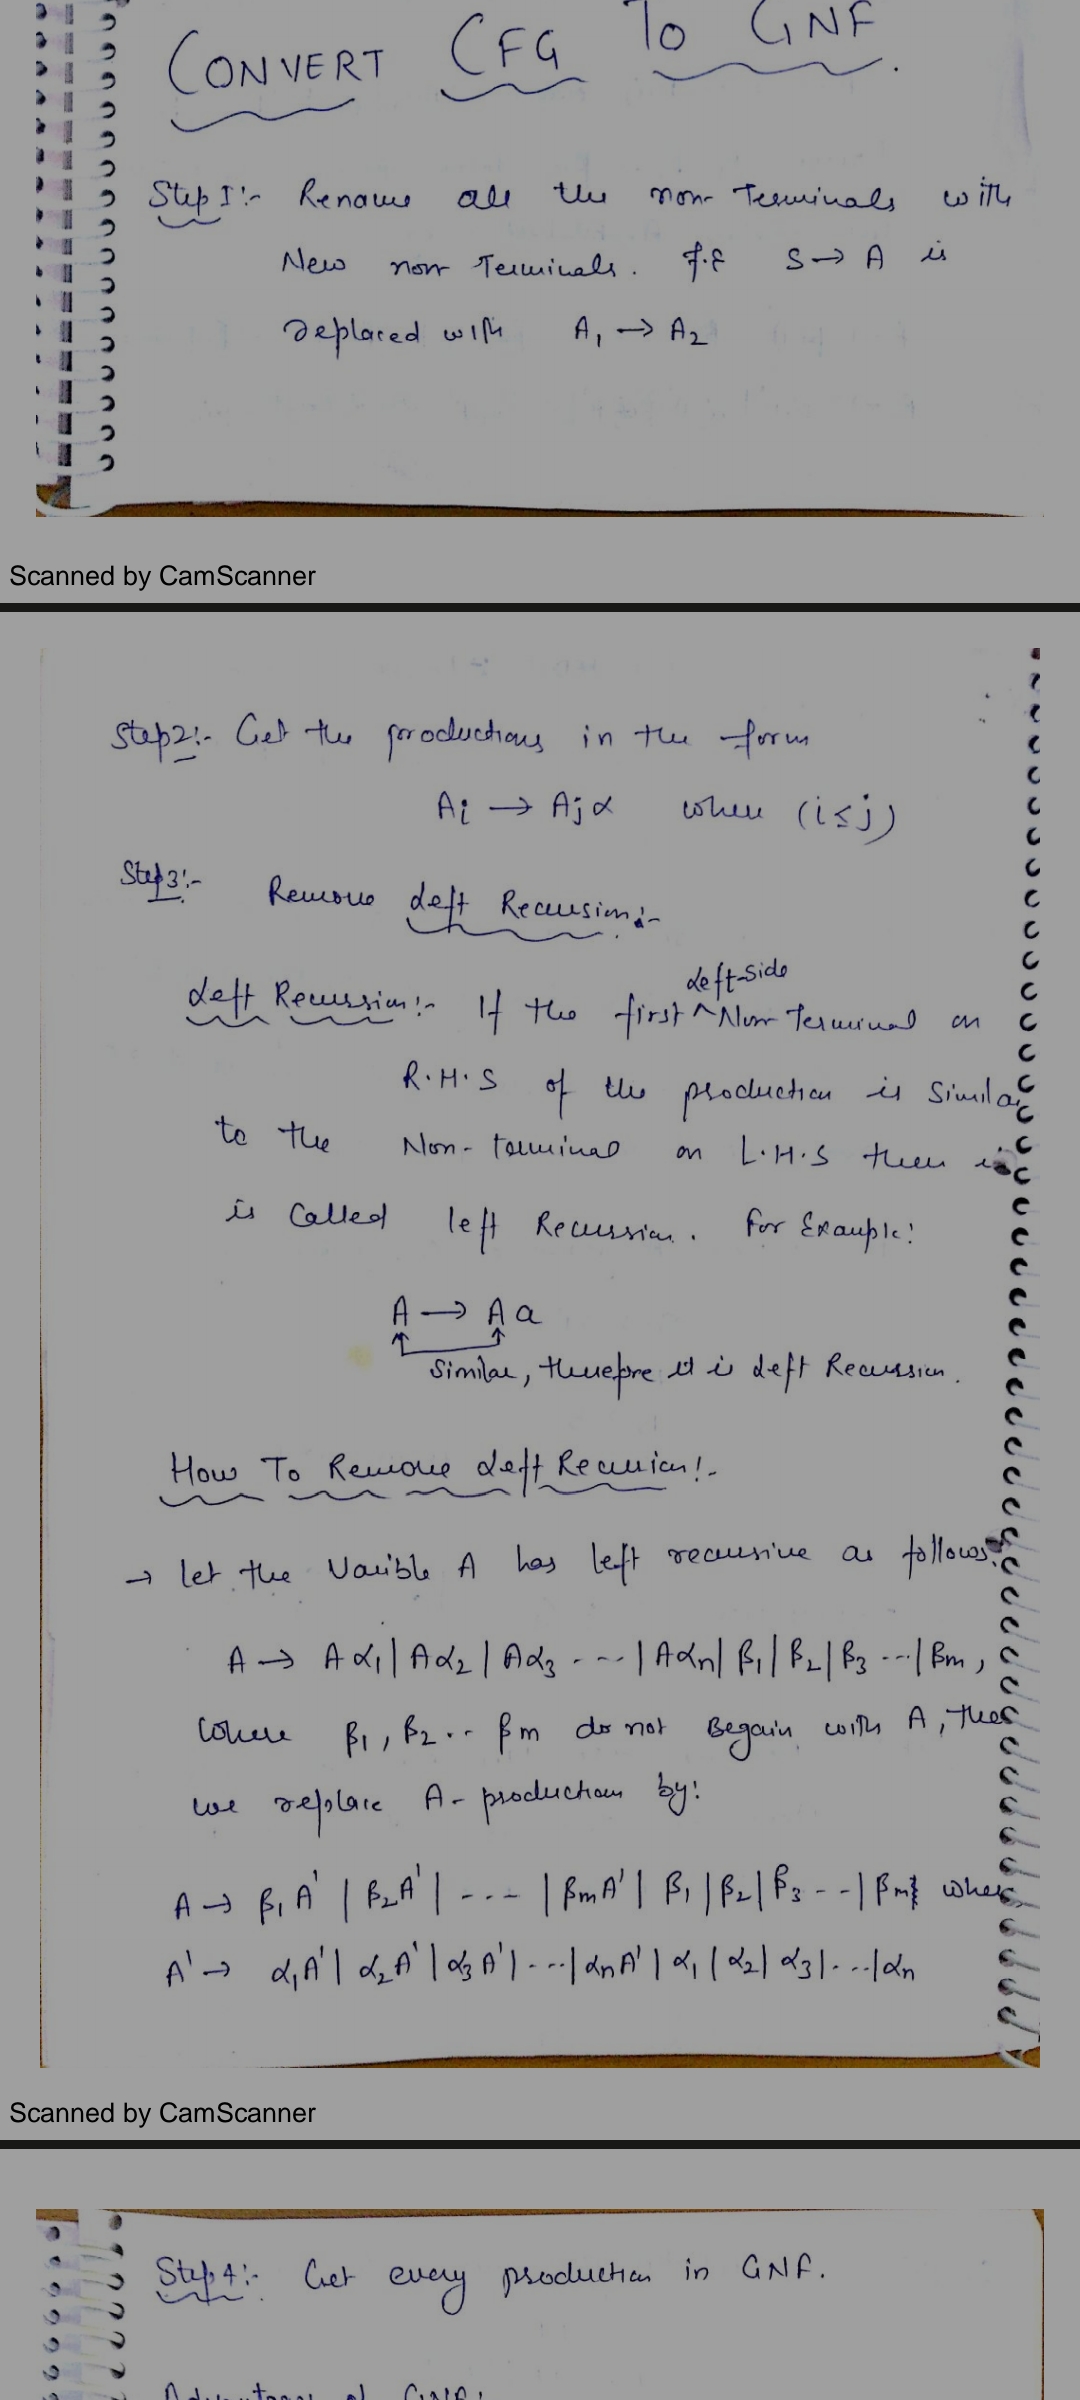 CONVERT CFG To GNF.
Step 1:- Rename all the non-Terminals with
New non Terminals. I.E S → A is
replaced with A₁ → A₂
Scanned by CamScanner
Step2:- Get the productions in the form
Ai → Ajα when (i≤j)
Step3:- Remove Left Recursion:-
Left-side
Left Recurssion:- If the first ^ Non Terminal on
R.H.S of the production is Similar
to the Non-terminal on L.H.S then it
is Called left Recurssion. For Example:
A → A a
Similar, therefore it is Left Recurssion.
How To Remove Left Recursion:-
→ let the Varible A has left recursive as follows:
A → Aα₁ | Aα₂ | Aα₃ --- | Aαn | β₁ | β₂ | β₃ --- | βm ,
Where β₁, β₂ .. βm do not Begain with A, then
we replace A- production by:
A → β₁A' | β₂A' | --- | βmA' | β₁ | β₂ | β₃ -- | βm where
A' → α₁A' | α₂A' | α₃A' | --- | αnA' | α₁ | α₂ | α₃ | --- | αn
Scanned by CamScanner
Step 4:- Get every production in GNF.